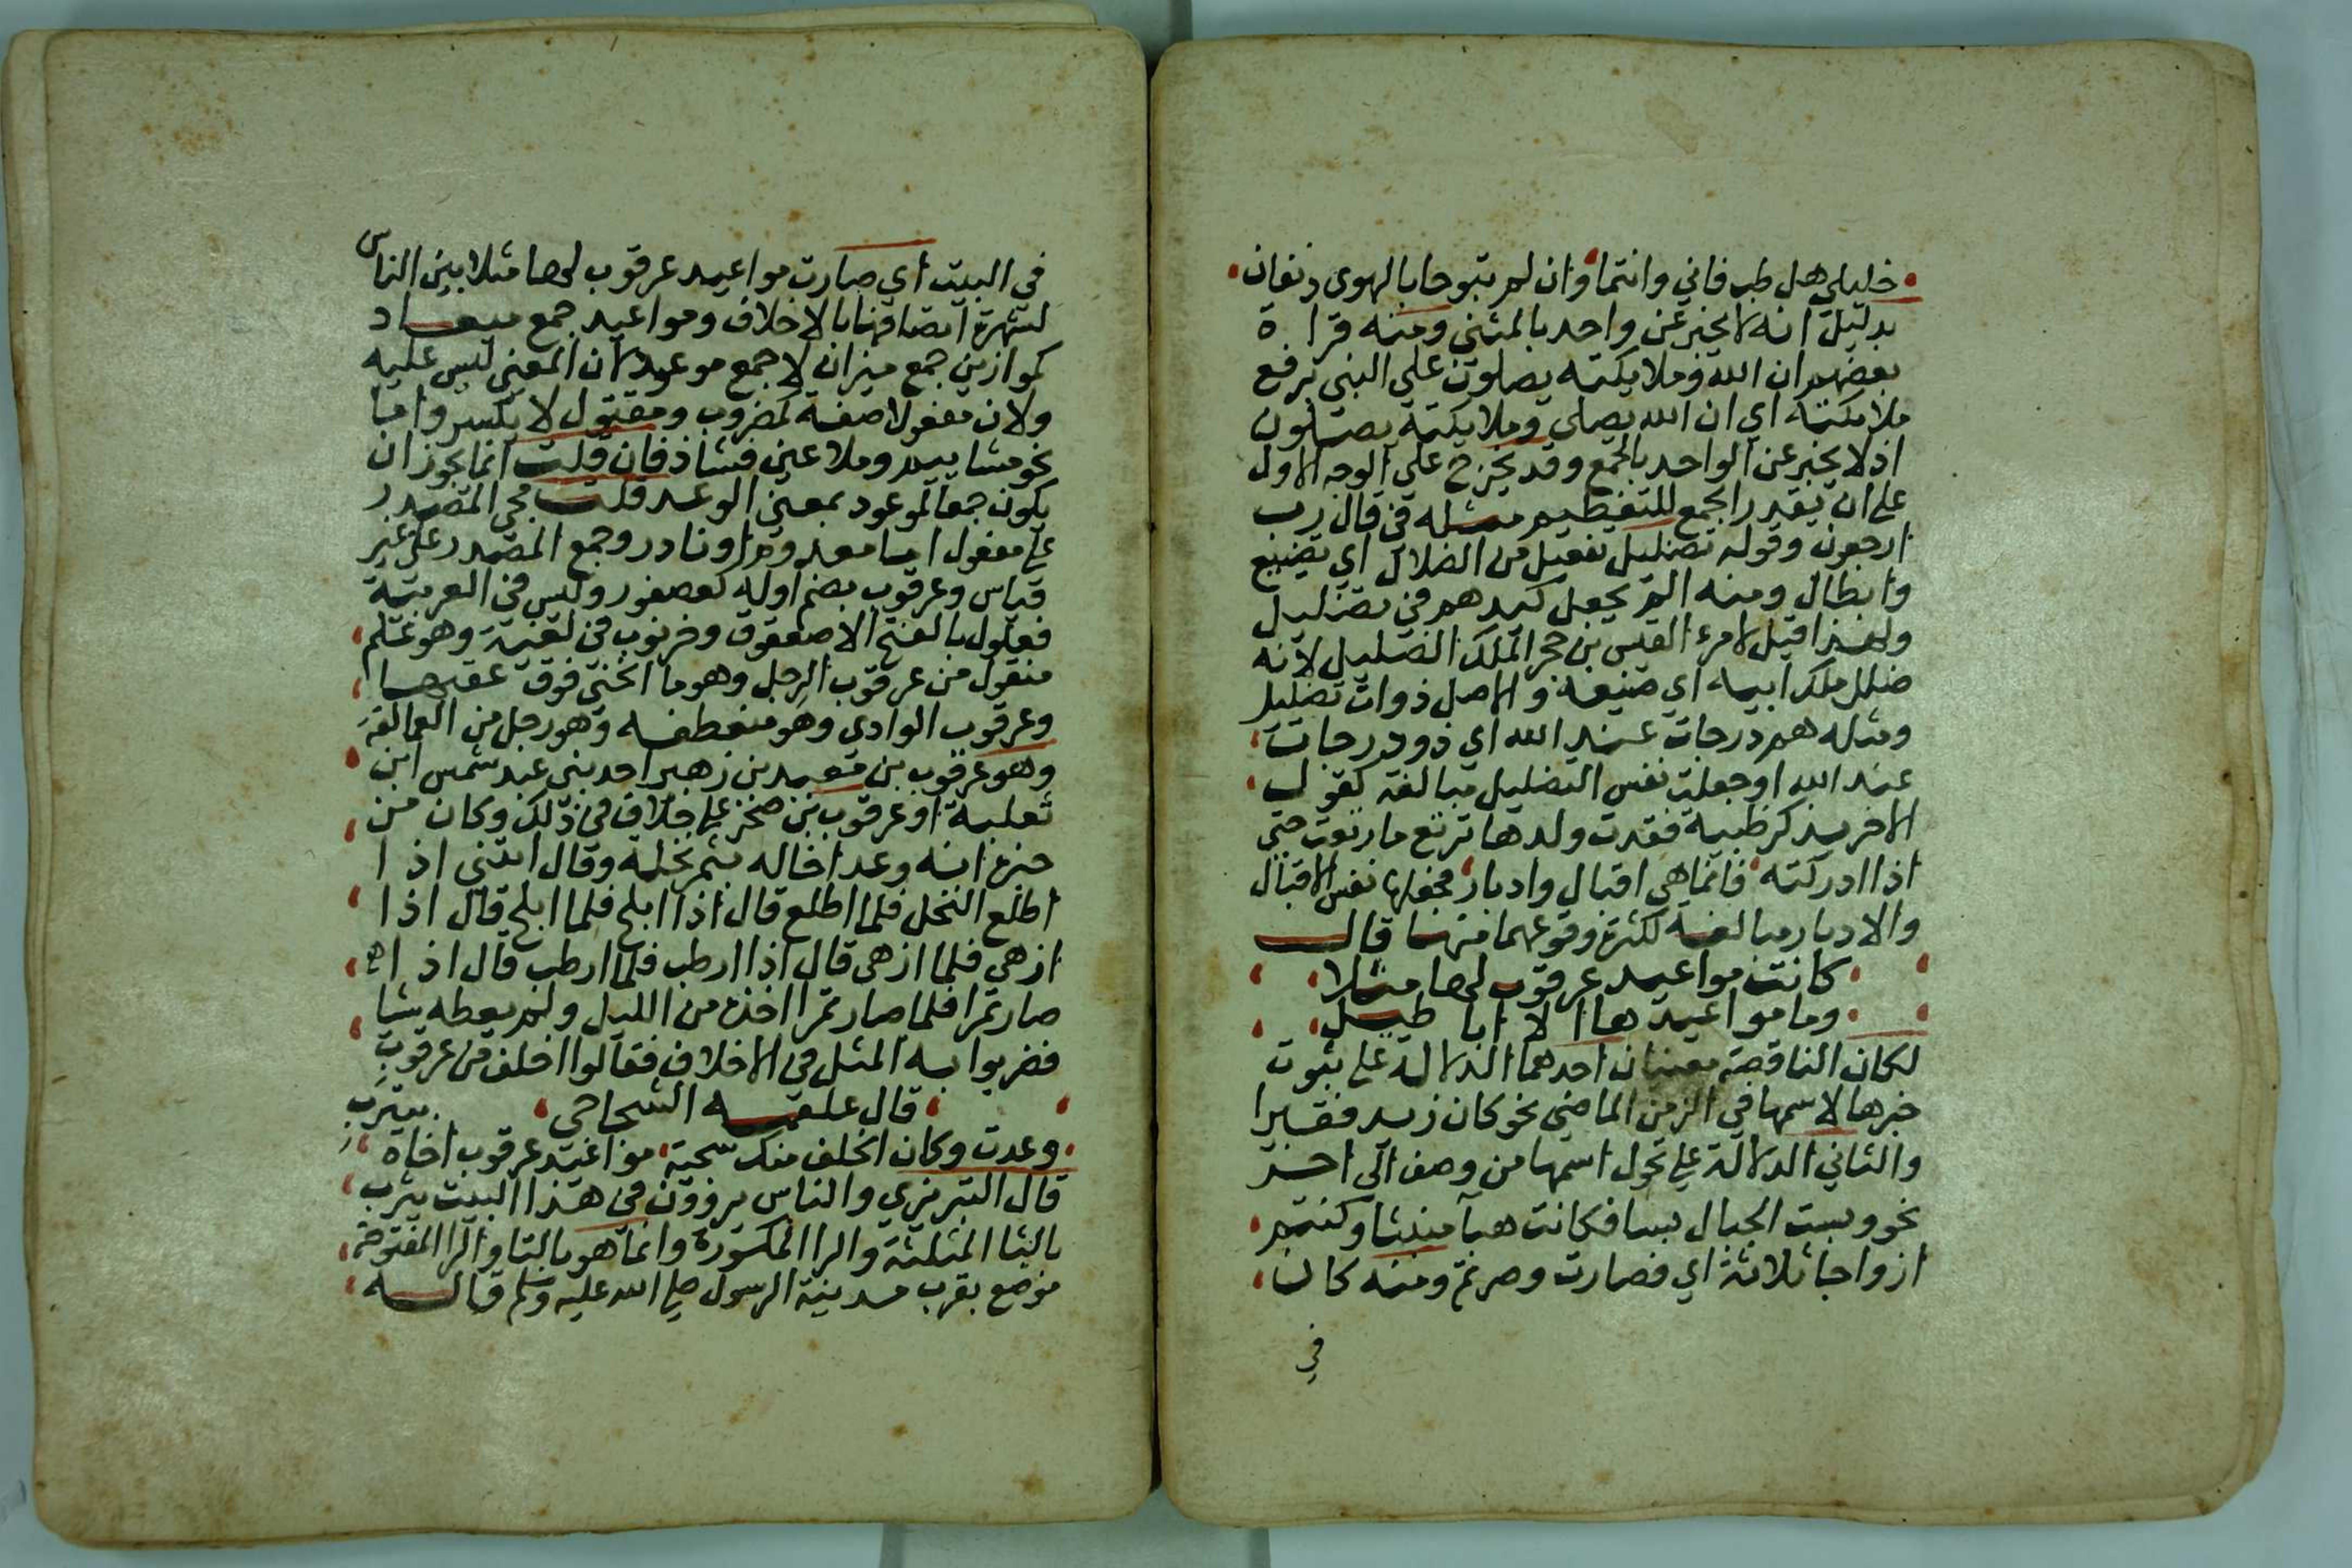 خليلي هل طب فاني وانتما وان لم تبوحا بالهوى دنفان
بدليل انه لا يخبر عن واحد بالمثنى ومنه قراة
بعضهم ان الله وملايكته يصلون على النبي برفع
ملايكته اي ان الله يصلي وملايكته يصلون
اذ لا يخبر عن الواحد بالجمع وقد يخرج على الوجه الاول
على ان يقدر الجمع للتعظيم مثله في قال رب
ارجعون وقوله تضليل تفعيل من الضلال اي تضييع
وابطال ومنه الم يجعل كيدهم في تضليل
ولهذا قيل لامرء القيس بن حجر الملك الضليل لانه
ضلل ملك ابيه اي ضيعه والاصل ذوات تضليل
ومثله هم درجات عند الله اي ذوو درجات
عند الله او جعلت نفس التضليل مبالغة كقول
الاخر يذكر ظبية فقدت ولدها ترتع ما رتعت حتى
اذا ادركته فانما هي اقبال وادبار فجعلها نفس الاقبال
والادبار مبالغة لكثرة وقوعهما منها قال
كانت مواعيد عرقوب لها مثلا
وما مواعيدها الا اباطيل
لكان الناقصة معنيان احدهما الدلالة على ثبوت
خبرها لاسمها في الزمن الماضي نحو كان زيد فقيرا
والثاني الدلالة على تحول اسمها من وصف الى اخر
نحو وبست الجبال بسا فكانت هبآ منبثا وكنتم
ازواجا ثلاثة اي فصارت وصرتم ومنه كان
في
في البيت اي صارت مواعيد عرقوب لها مثلا بين الناس
لشهرة اتصافها بالاخلاف ومواعيد جمع ميعاد
كموازين جمع ميزان لا جمع موعود لان المعنى ليس عليه
ولان مفعولا صفة كمضروب ومقتول لا يكسر واما
نحو مشاييم وملاعين فشاذ فان قلت انما يجوز ان
يكون جمعا لموعود بمعنى الوعد قلت مجي المصدر
على مفعول اما معدوم او نادر وجمع المصدر على غير
قياس وعرقوب بضم اوله كعصفور وليس في العربية
فعلول بالفتح الا صعقوق وخرنوب في لغية وهو علم
منقول من عرقوب الرجل وهو ما انحنى فوق عقبها
وعرقوب الوادي وهو منعطفه وهو رجل من العمالقة
وهو عرقوب بن معبد بن زهير احد بني عبد شمس ابن
ثعلبة او عرقوب بن صخر على خلاف في ذلك وكان من
خبره انه وعد اخاله بثمر نخلة وقال ائتني اذا
اطلع النخل فلما اطلع قال اذا ابلح فلما ابلح قال اذا
ازهى فلما ازهى قال اذا ارطب فلما ارطب قال اذا
صار تمرا فلما صار تمرا اخذه من الليل ولم يعطه شيا
فضربوا به المثل في الاخلاف فقالوا اخلف من عرقوب
قال علقمه الشجاحي بيترب
وعدت وكان الخلف منك سجية مواعيد عرقوب اخاه
قال التبريزي والناس يروون في هذا البيت يثرب
بالثا المثلثة والرا المكسورة وانما هو بالتا والرا المفتوحة
موضع بقرب مدينة الرسول صلى الله عليه وسلم قاله